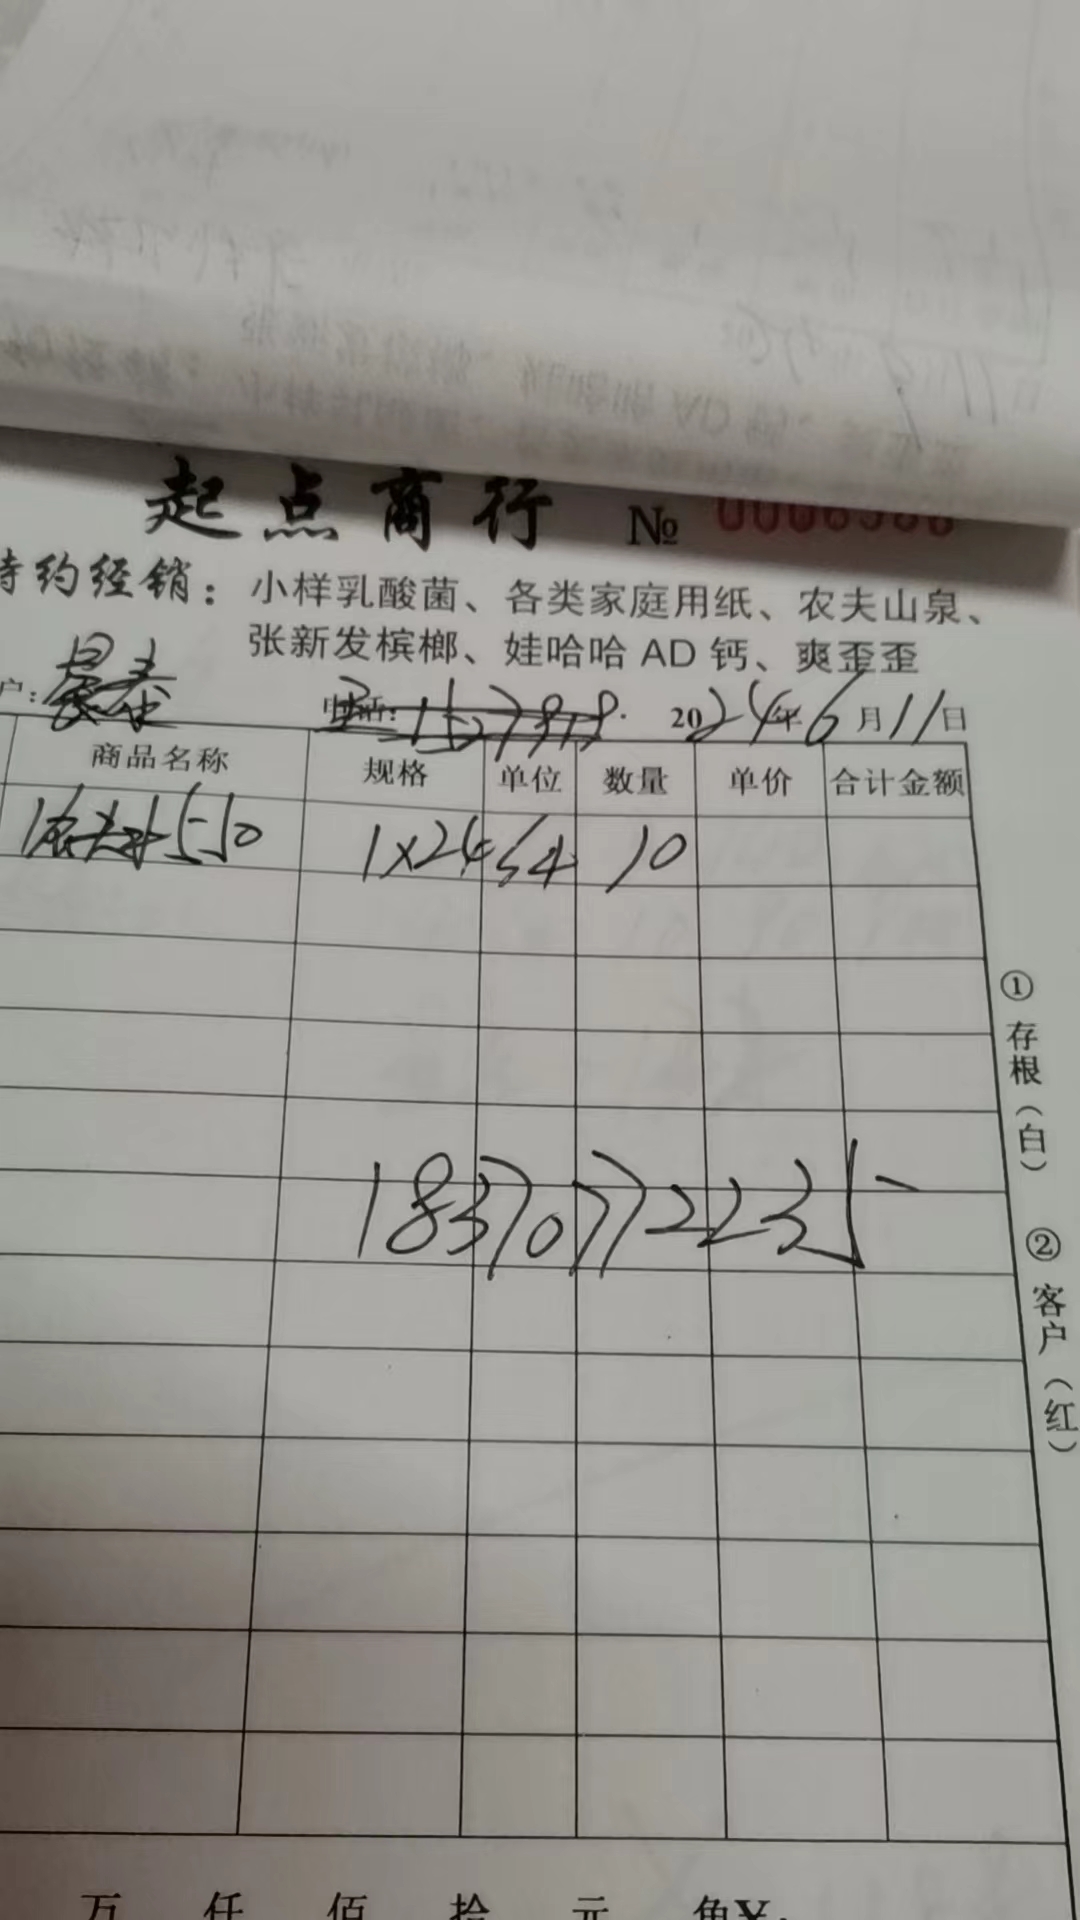 起点商行 №
特约经销：小样乳酸菌、各类家庭用纸、农夫山泉、
张新发槟榔、娃哈哈 AD 钙、爽歪歪
户： 电话： 2024年6月11日
商品名称 规格 单位 数量 单价 合计金额
550 1x24 10
18370772235
①存根（白） ②客户（红）
万 仟 佰 拾 元 角 ¥：